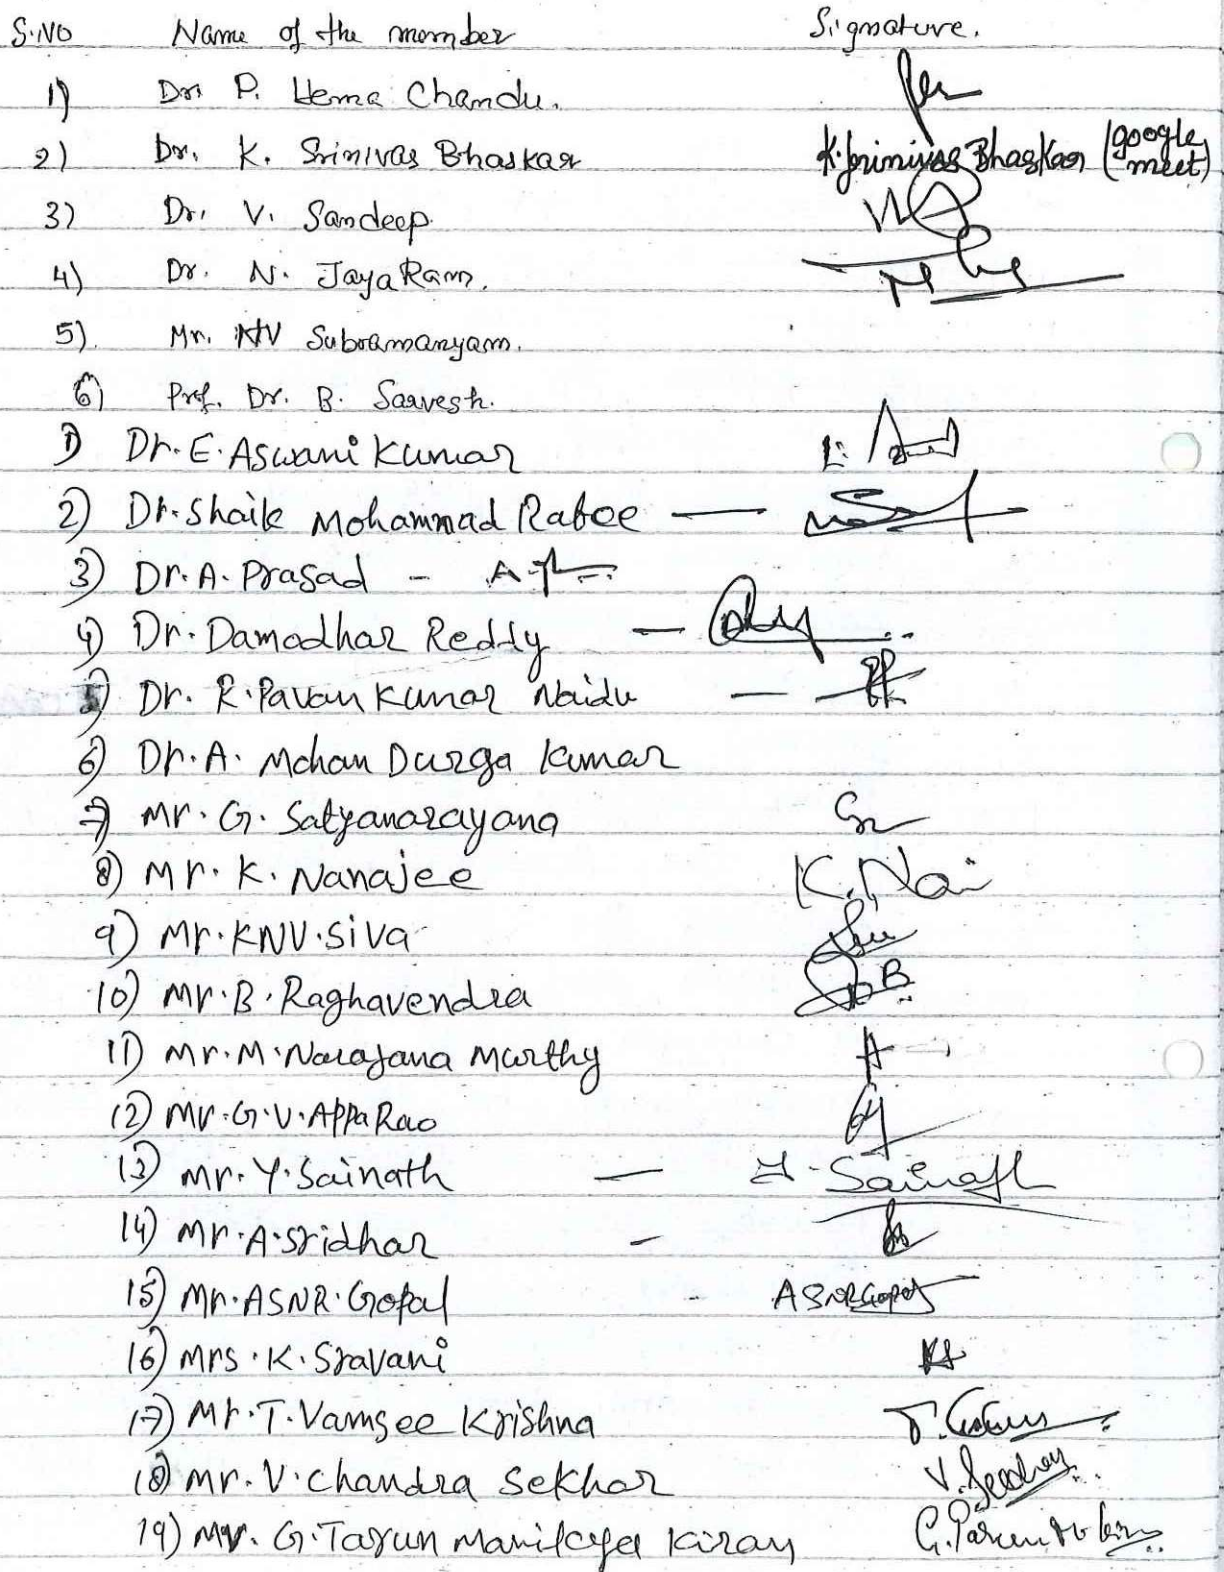 S.NO Name of the member Signature.
1) Dr. P. Hema Chandu.
2) Dr. K. Srinivas Bhaskar K. Srinivas Bhaskar (google meet)
3) Dr. V. Sandeep.
4) Dr. N. JayaRam.
5). Mr. KNV Subramanyam.
6) Prof. Dr. B. Sarvesh.
1) Dr. E. Aswani Kumar
2) Dr. Shaik Mohammad Rafee —
3) Dr. A. Prasad -
4) Dr. Damodhar Reddy —
5) Dr. R. Pavan Kumar Naidu —
6) Dr. A. Mohan Durga Kumar
7) Mr. G. Satyanarayana
8) Mr. K. Nanajee K. Nai
9) Mr. KNV. Siva
10) Mr. B. Raghavendra
11) Mr. M. Narayana Murthy
12) Mr. G. V. AppaRao
13) Mr. Y. Sainath — Y. Sainath
14) Mr. A. Sridhar -
15) Mr. ASNR. Gopal - ASNRGopal
16) Mrs. K. Sravani
17) Mr. T. Vamsee Krishna
18) Mr. V. Chandra Sekhar
19) Mr. G. Tarun Manikya Kiran